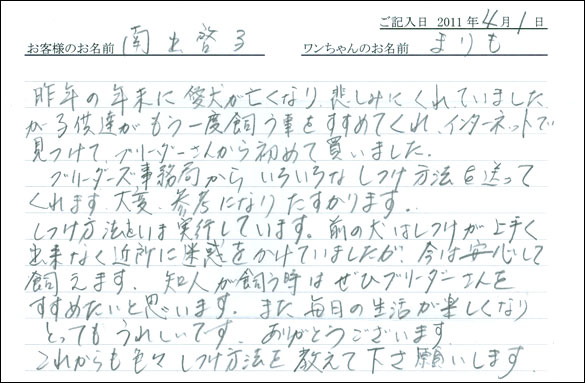 ご記入日 2011年4月1日
お客様のお名前 南出啓子 ワンちゃんのお名前 まりも
昨年の年末に愛犬が亡くなり、悲しみにくれていました
が子供達がもう一度飼う事をすすめてくれ、インターネットで
見つけて、ブリーダーさんから初めて買いました。
ブリーダーズ事務局からいろいろなしつけ方法を送って
くれます。大変、参考になりたすかります。
しつけ方法をいま実行しています。前の犬はしつけが上手く
出来なく近所に迷惑をかけていましたが、今は安心して
飼えます。知人が飼う時はぜひブリーダーさんを
すすめたいと思います。また毎日の生活が楽しくなり
とってもうれしいです。ありがとうございます。
これからも色々しつけ方法を教えて下さ願いします